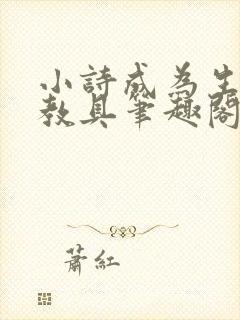 小詩成為生
教具筆趣閣
蕭紅